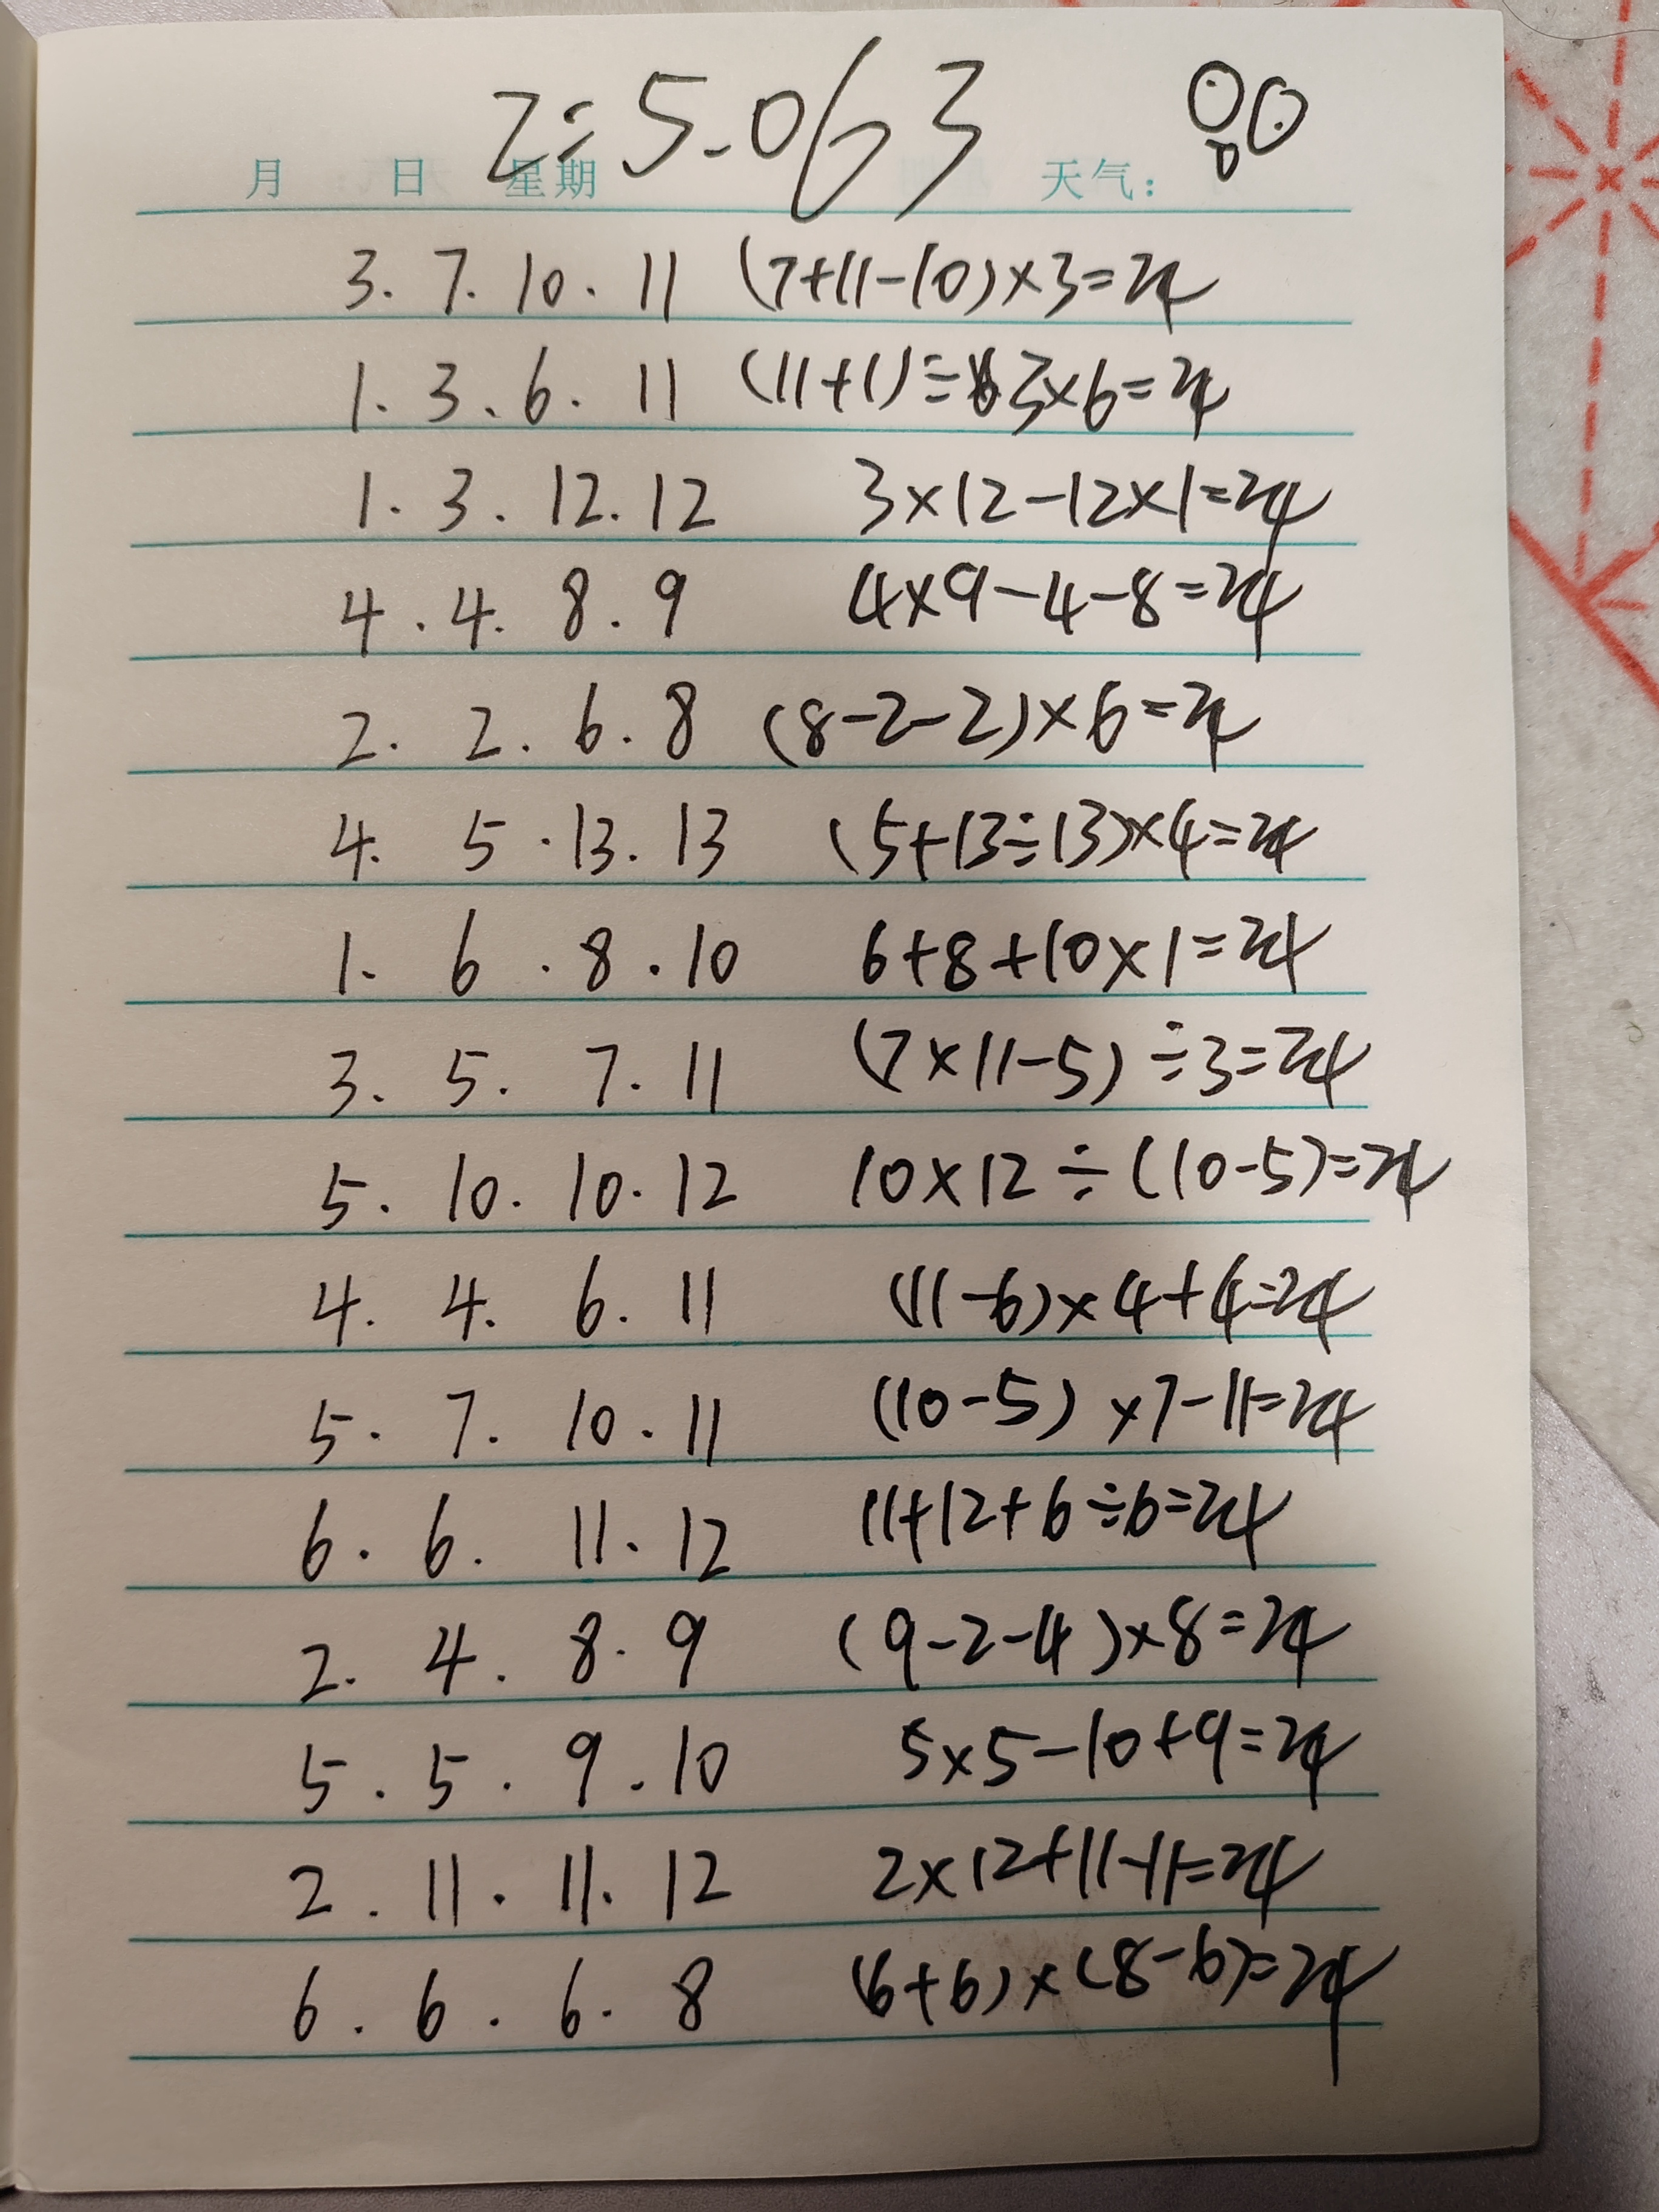 z=5.063
月 日 星期 天气:
3. 7. 10. 11 (7+11-10)×3=24
1. 3. 6. 11 (11+1)÷3×6=24
1. 3. 12. 12 3×12-12×1=24
4. 4. 8. 9 4×9-4-8=24
2. 2. 6. 8 (8-2-2)×6=24
4. 5. 13. 13 (5+13÷13)×4=24
1. 6. 8. 10 6+8+10×1=24
3. 5. 7. 11 (7×11-5)÷3=24
5. 10. 10. 12 10×12÷(10-5)=24
4. 4. 6. 11 (11-6)×4+4=24
5. 7. 10. 11 (10-5)×7-11=24
6. 6. 11. 12 11+12+6÷6=24
2. 4. 8. 9 (9-2-4)×8=24
5. 5. 9. 10 5×5-10+9=24
2. 11. 11. 12 2×12+11-11=24
6. 6. 6. 8 (6+6)×(8-6)=24